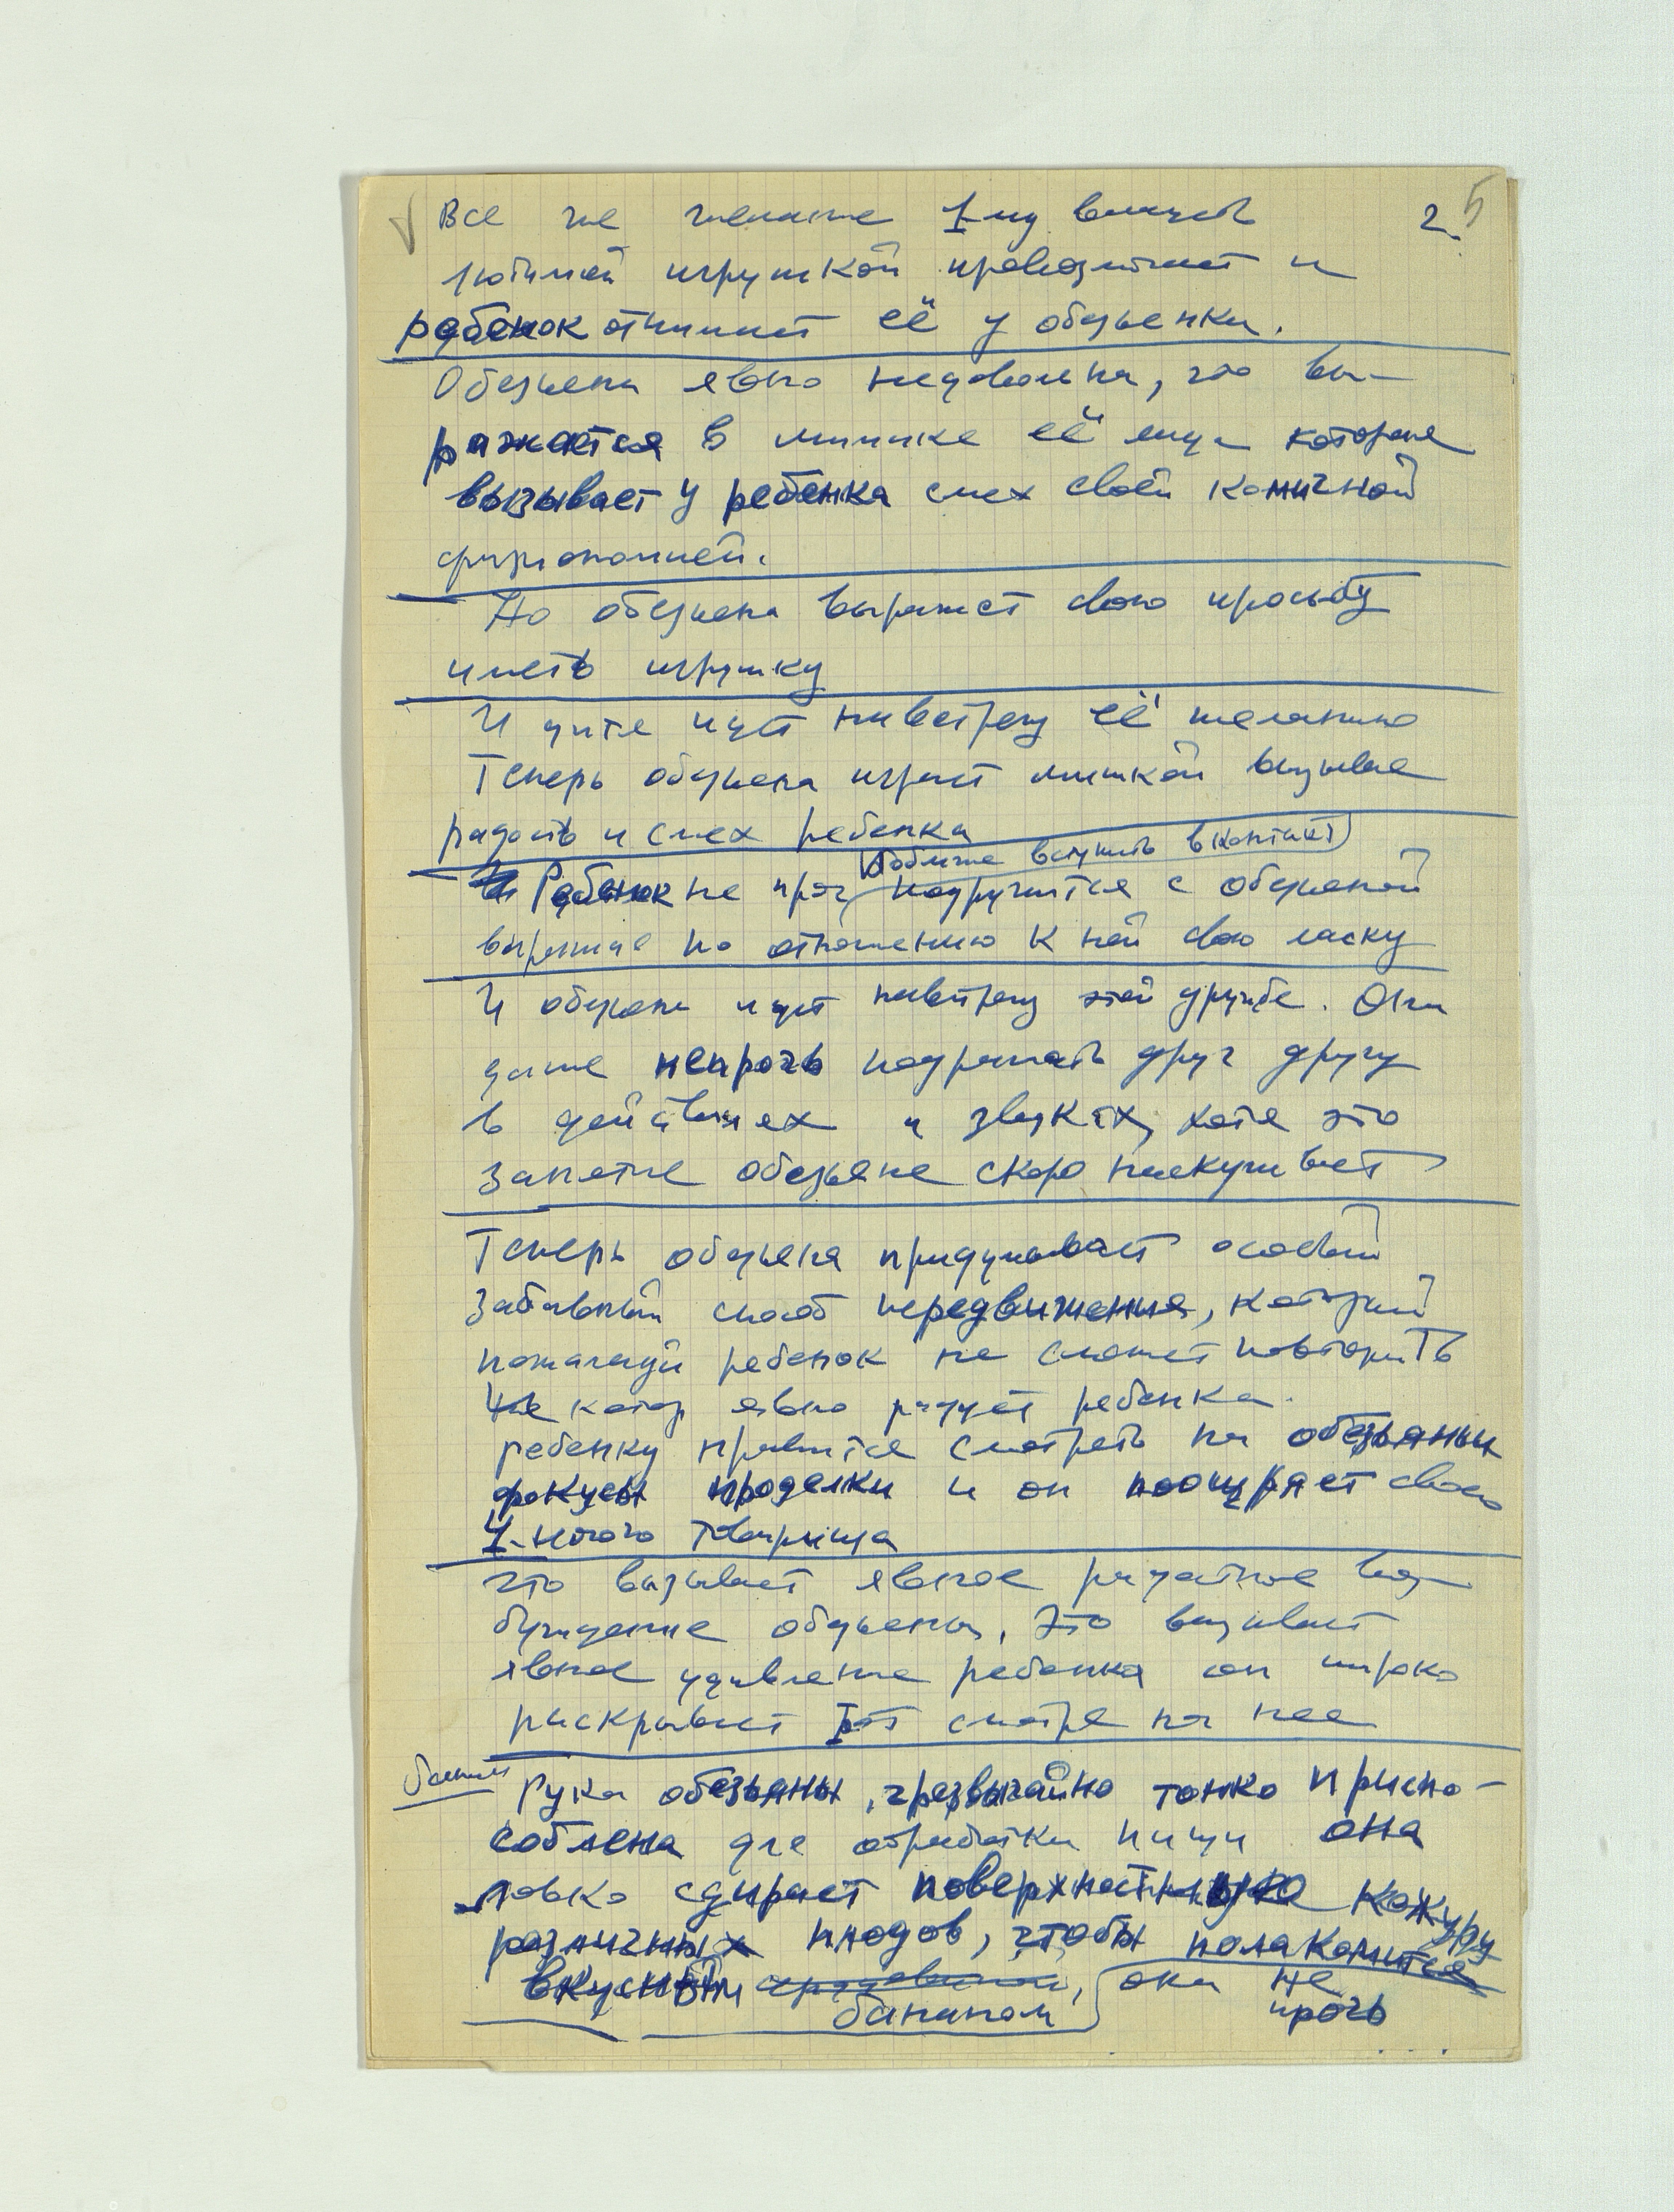 Все же желание 1-му владеть 2. 5
любимой игрушкой превозмогает и
ребенок отнимает её у обезьянки.
Обезьяна явно недовольна, что вы-
ражается в мимике её лица которая
вызывает у ребенка смех своей комичной
физиономией.
Но обезьяна выражает свою просьбу
иметь игрушку
И дитя идет навстречу её желанию
Теперь обезьяна играет мишкой вызывая
радость и смех ребенка
вступить в контакт)
Ребенок не проч подружится с обезьяной
выражая по отношению к ней свою ласку
И обезьяна идет навстречу этой дружбе. Они
даже непрочь подражать друг другу
в действиях и звуках, хотя это
занятие обезьяне скоро наскучивает
Теперь обезьяна придумывает особый
забавный способ передвижения, который
пожалуй ребенок не сможет повторить
котор явно радует ребенка.
ребенку нравится смотреть на обезьяньи
фокусы проделки и он поощряет своего
4-ногого товарища
что вызывает явное радостное воз-
буждение обезьяны, Это вызывает
явное удивление ребенка он широко
раскрывает рот смотря на нее
банан Рука обезьяны, чрезвычайно тонко приспо-
соблена для обработки пищи она
ловко сдирает поверхностную кожуру
различных плодов, чтобы полакомится
вкусным она не
бананом прочь